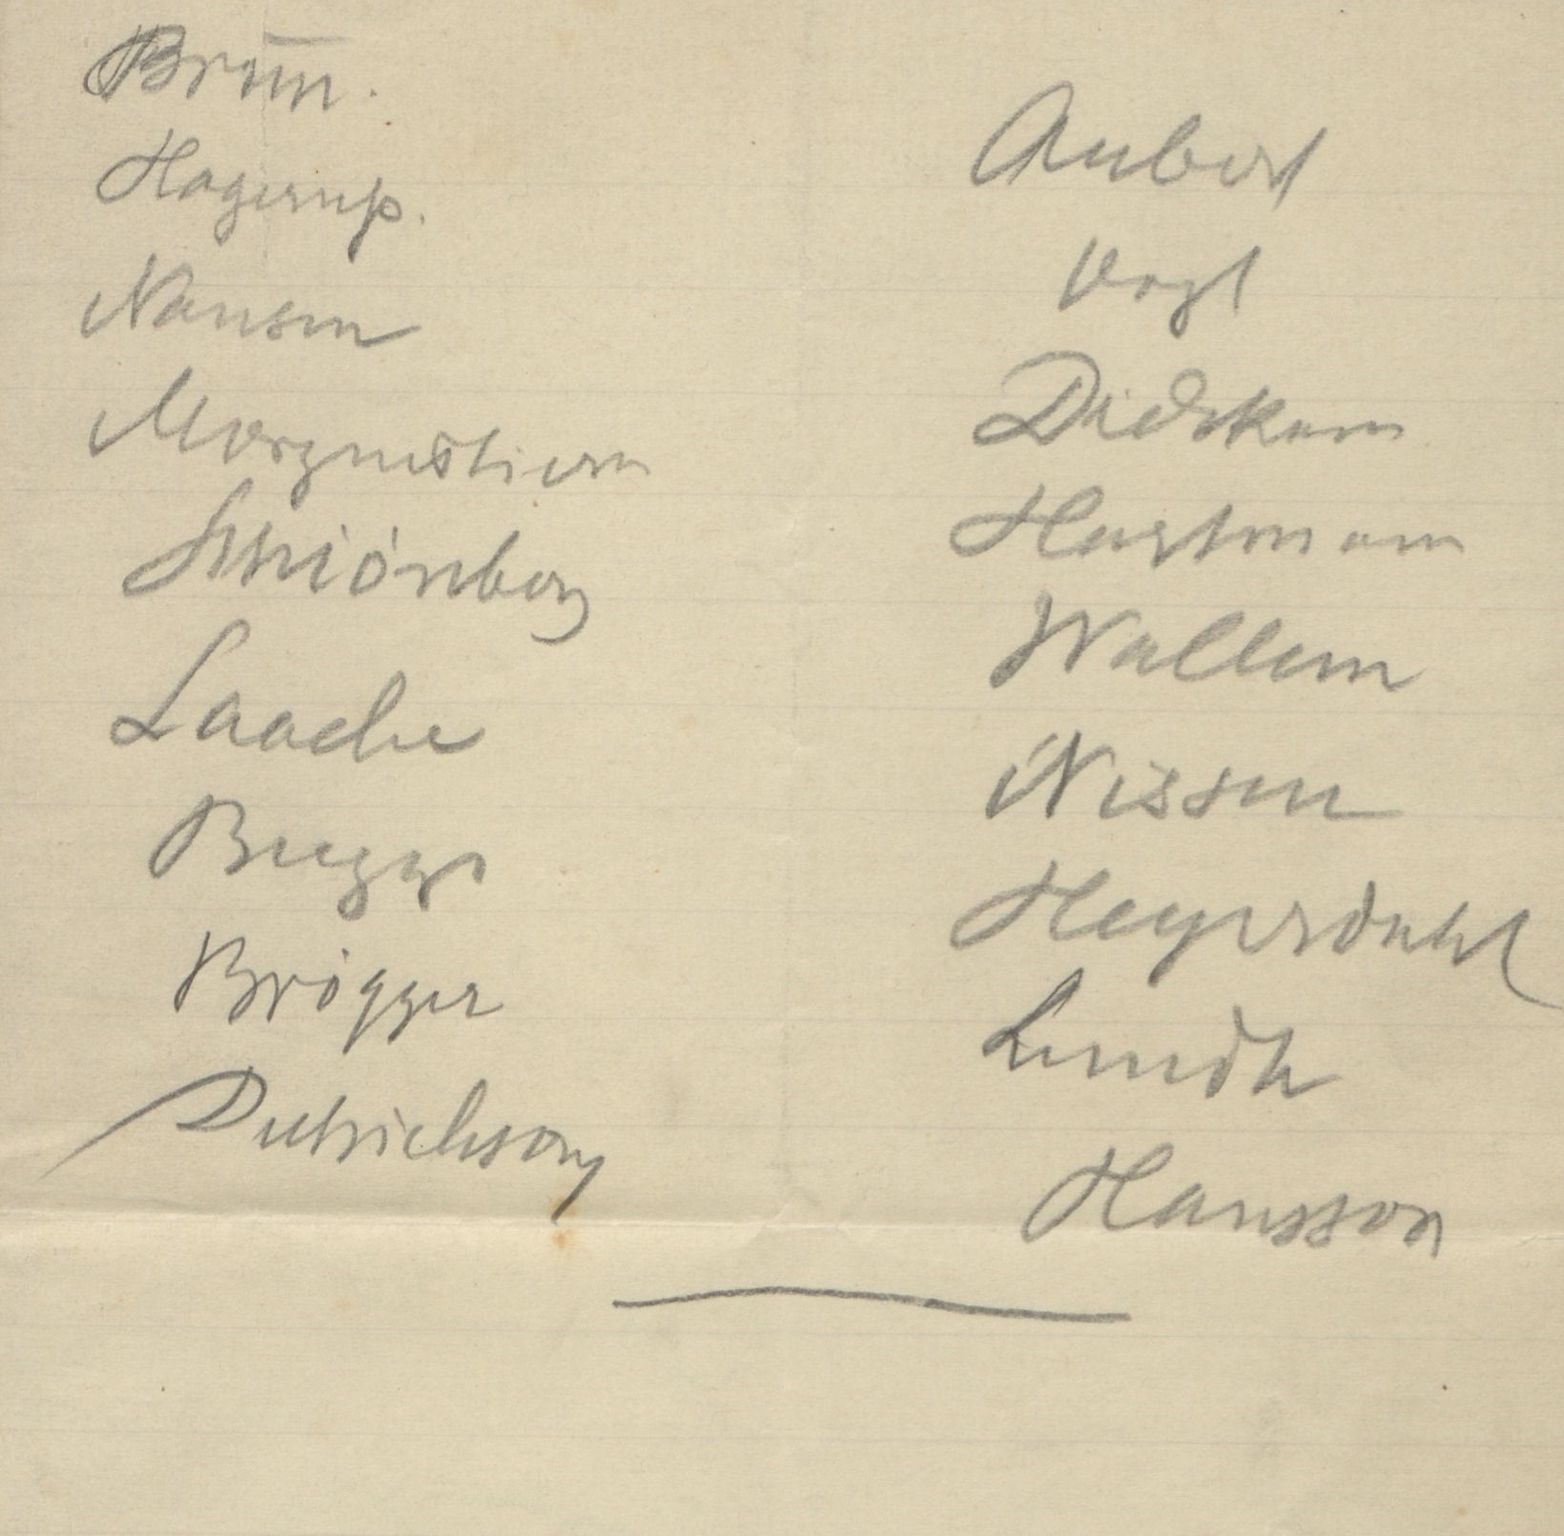 Brun.
Hagerup.
Nansen
Morgenstierne
Schiönberg
Laache
Bugge
Brögger
Dietrichson
Aubert
Vogt
Hartmann
Wallem
Nissen
Heyerdahl
Lundh
Hansson